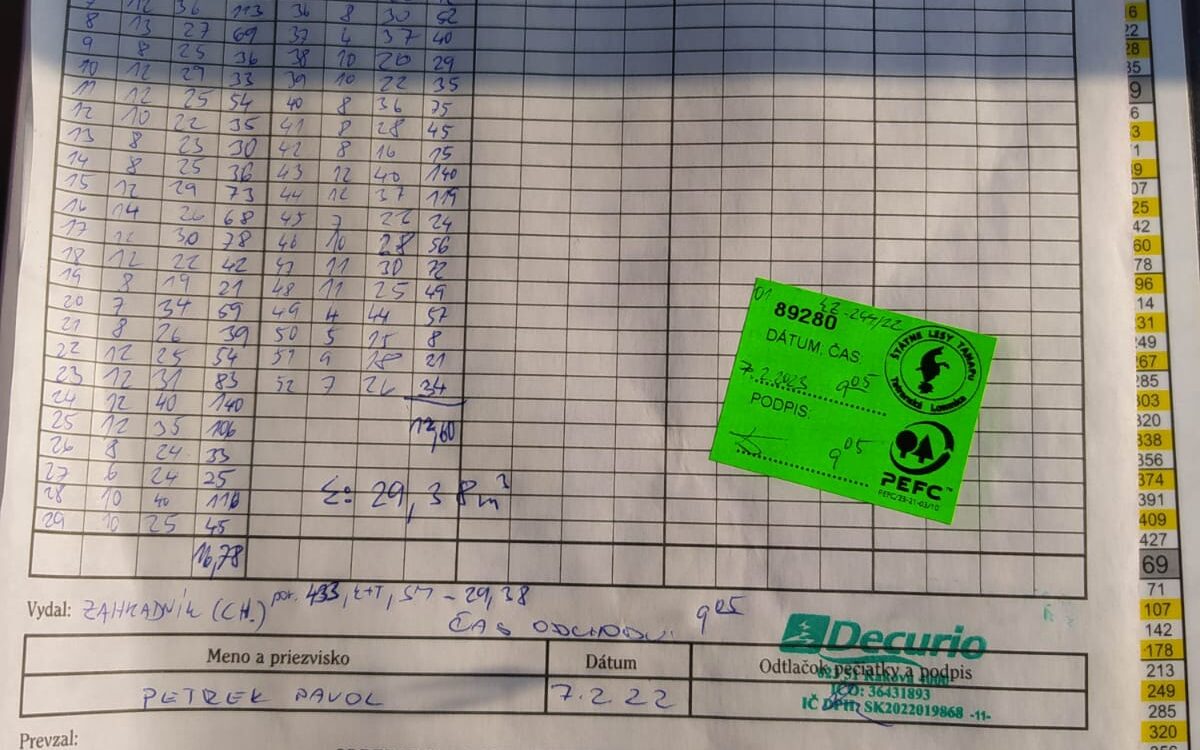 7 12 36 113 36 8 30 62
8 13 27 69 37 4 37 40
9 8 25 36 38 10 20 29
10 12 29 33 39 10 22 35
11 12 25 54 40 8 36 75
12 10 22 35 41 8 28 45
13 8 23 30 42 8 16 15
14 8 25 36 43 12 40 140
15 12 29 73 44 12 37 119
16 14 26 68 45 7 22 24
17 12 30 78 46 10 28 56
18 12 22 42 47 11 30 72
19 8 19 21 48 11 25 49
20 7 34 59 49 4 44 57
21 8 26 39 50 5 15 8
22 12 25 54 51 9 18 21
23 12 31 83 52 7 26 34
24 12 40 140
25 12 35 106 12,60
26 8 24 33
27 6 24 25
28 10 40 110 Σ: 29,38m³
29 10 25 45
16,78
01 LZ-244/22
89280
DÁTUM, ČAS
7.2.2023 9⁰⁵
PODPIS:
9⁰⁵
ŠTÁTNE LESY TANAPU
Tatranská Lomnica
PEFC™
PEFC/23-21-03/10
Vydal: ZAHRADNÍK (CH.) por. 433, SM - 29,38
ČAS ODCHODU: 9⁰⁵
Decurio
Meno a priezvisko Dátum Odtlačok pečiatky a podpis
023 51 Raková
IČO: 36431893
PETREK PAVOL 7.2 22
IČ DPH: SK2022019868 -11-
Prevzal:
16
22
28
35
9
6
3
71
39
07
25
42
60
78
96
14
231
249
267
285
303
320
338
356
374
391
409
427
69
71
107
142
178
213
249
285
320